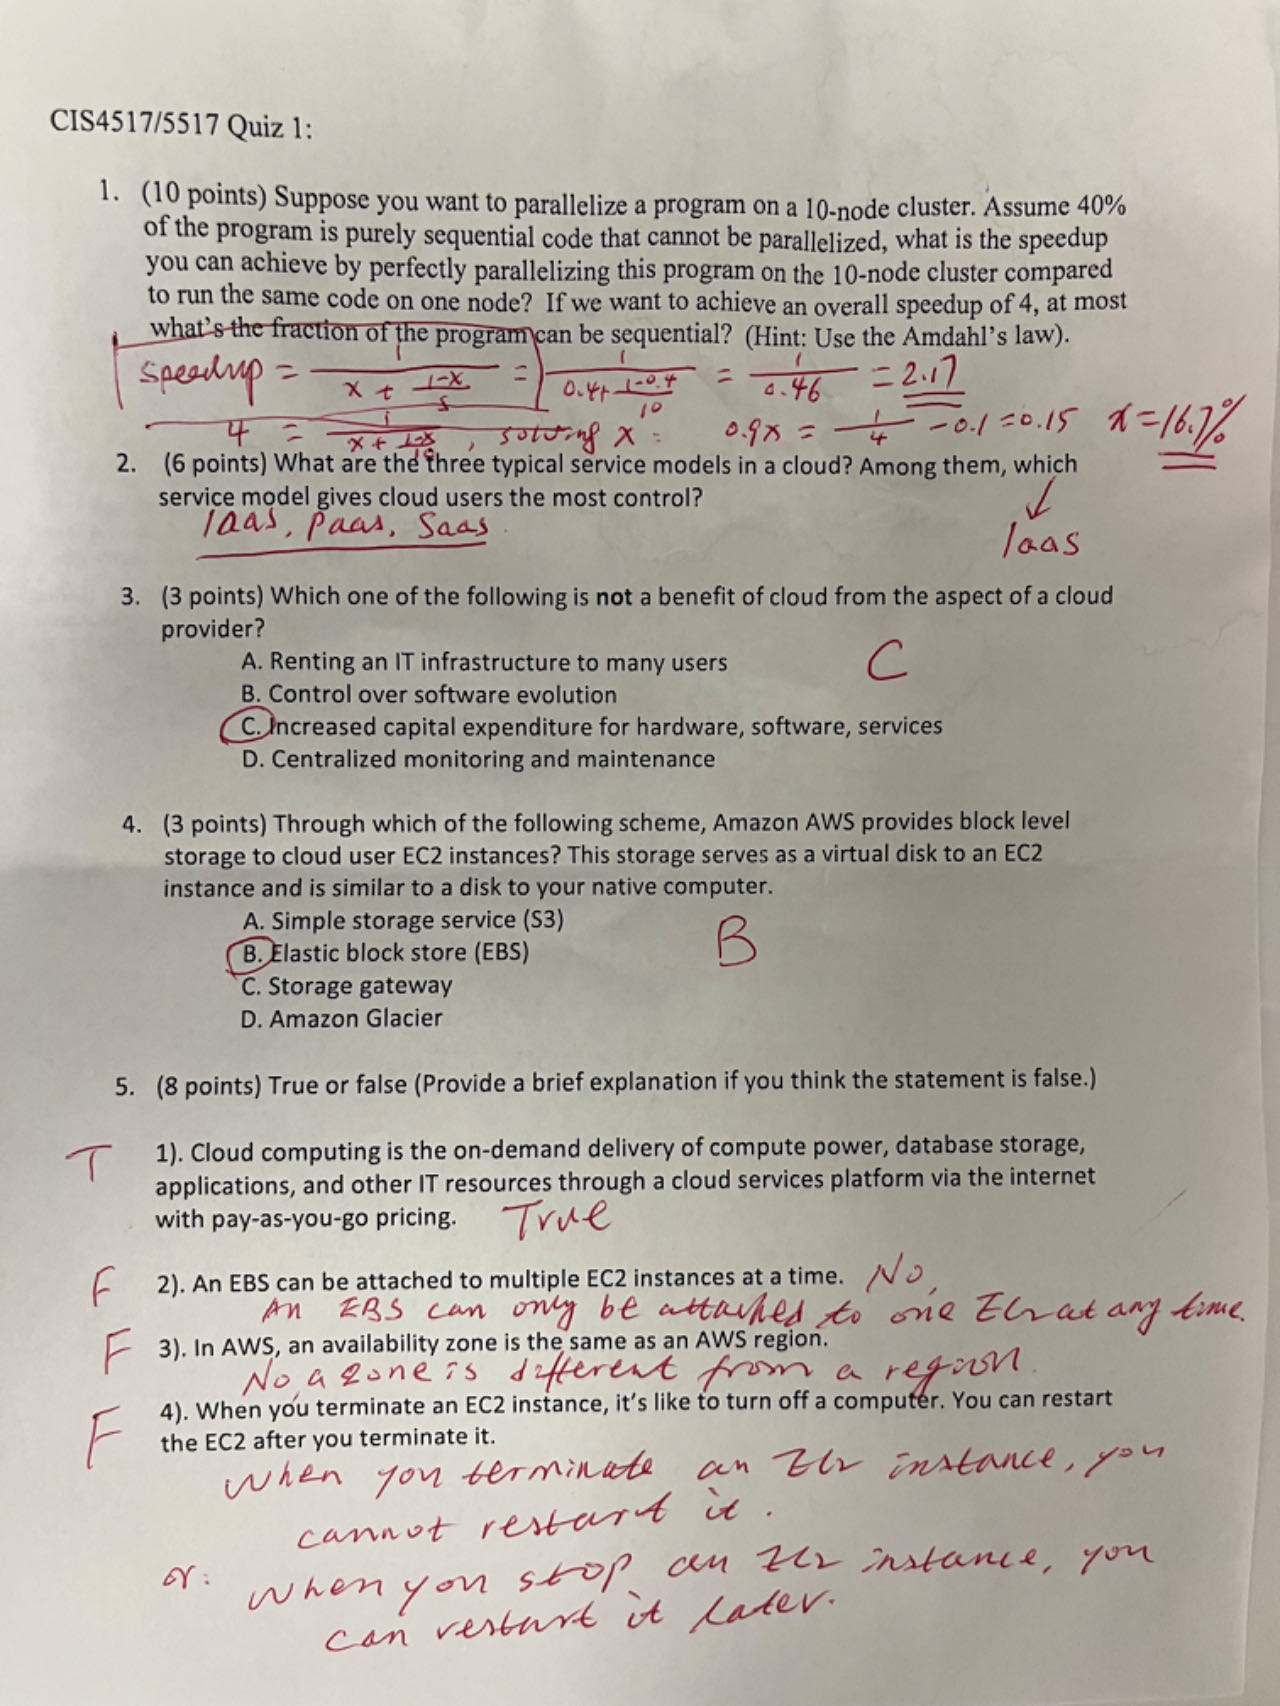 CIS4517/5517 Quiz 1:
1. (10 points) Suppose you want to parallelize a program on a 10-node cluster. Assume 40%
of the program is purely sequential code that cannot be parallelized, what is the speedup
you can achieve by perfectly parallelizing this program on the 10-node cluster compared
to run the same code on one node? If we want to achieve an overall speedup of 4, at most
what's the fraction of the program can be sequential? (Hint: Use the Amdahl's law).
Speedup = 1 / (x + (1-x)/s) = 1 / (0.4 + (1-0.4)/10) = 1/0.46 = 2.17
4 = 1 / (x + (1-x)/10), solving x: 0.9x = 1/4 - 0.1 = 0.15 x = 16.7%
2. (6 points) What are the three typical service models in a cloud? Among them, which
service model gives cloud users the most control?
Iaas, Paas, Saas
Iaas
3. (3 points) Which one of the following is not a benefit of cloud from the aspect of a cloud
provider?
A. Renting an IT infrastructure to many users
C
B. Control over software evolution
C. Increased capital expenditure for hardware, software, services
D. Centralized monitoring and maintenance
4. (3 points) Through which of the following scheme, Amazon AWS provides block level
storage to cloud user EC2 instances? This storage serves as a virtual disk to an EC2
instance and is similar to a disk to your native computer.
A. Simple storage service (S3)
B. Elastic block store (EBS)
B
C. Storage gateway
D. Amazon Glacier
5. (8 points) True or false (Provide a brief explanation if you think the statement is false.)
T 1). Cloud computing is the on-demand delivery of compute power, database storage,
applications, and other IT resources through a cloud services platform via the internet
with pay-as-you-go pricing. True
F 2). An EBS can be attached to multiple EC2 instances at a time. No,
An EBS can only be attached to one EC2 at any time.
F 3). In AWS, an availability zone is the same as an AWS region.
No, a zone is different from a region.
F 4). When you terminate an EC2 instance, it's like to turn off a computer. You can restart
the EC2 after you terminate it.
When you terminate an EC2 instance, you
cannot restart it.
or: When you stop an EC2 instance, you
can restart it later.